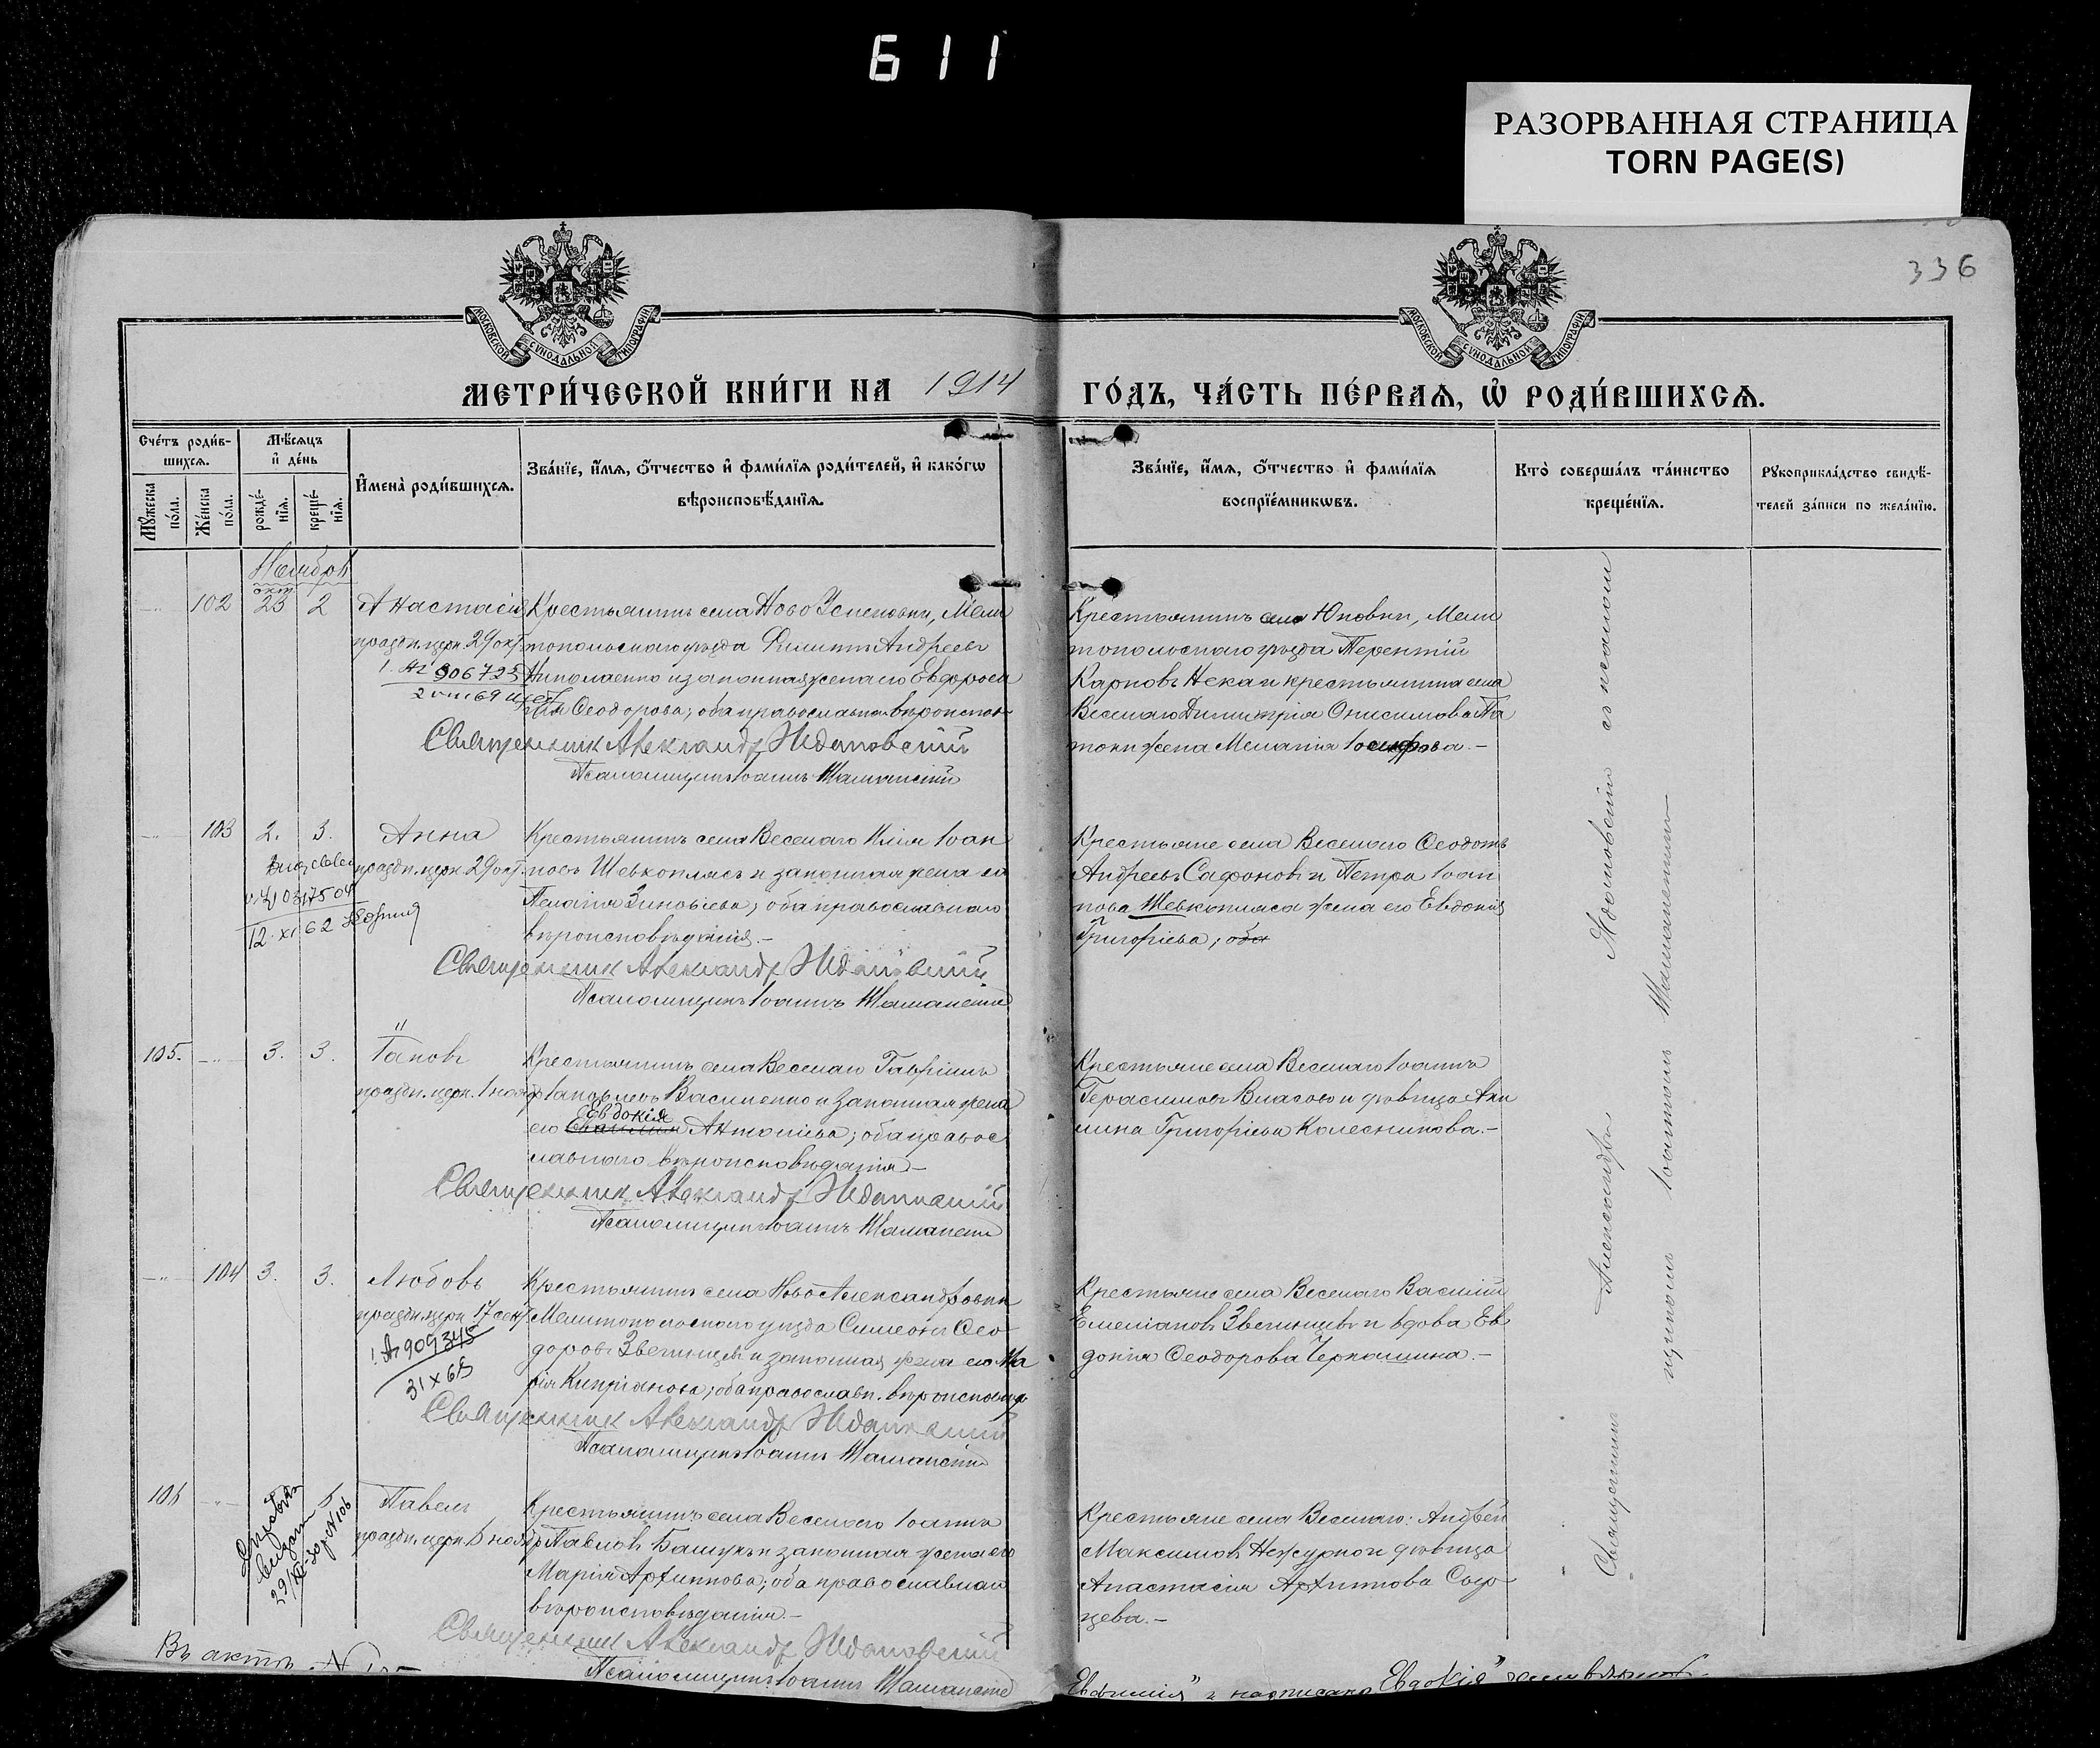 611
РАЗОРВАННАЯ СТРАНИЦА
TORN PAGE(S)
336
МОСКОВСКОЙ СУНОДАЛЬНОЙ ТИПОГРАФІИ
МОСКОВСКОЙ СУНОДАЛЬНОЙ ТИПОГРАФІИ
МЕТРИ́ЧЕСКОЙ КНИ́ГИ НА 1914
ГО́ДЪ, ЧА́СТЬ ПЕ́РВАѦ, Ѡ РОДИ́ВШИХСѦ.
Сче́тъ роди́в-
шихсѧ.
Мꙋ́жеска по́ла.
Же́нска по́ла.
Мѣ́сѧцъ
и҆ де́нь
рожде́-
нїѧ.
креще́-
нїѧ.
И҆мена̀ роди́вшихсѧ.
Зва́нїе, и҆́мѧ, ѻ҆́тчество и҆ фами́лїѧ роди́телей, и҆ како́гѡ
вѣроисповѣ́данїѧ.
Зва́нїе, и҆́мѧ, ѻ҆́тчество и҆ фами́лїѧ
воспрїе́мникѡвъ.
Кто̀ соверша́лъ та́инство
креще́нїѧ.
Рꙋкоприкла́дство свидѣ́-
телей за́писи по жела́нїю.
Ноябрь
окт
102 23 2 Анастасія
праздн. церк. 29 окт.
906725
Крестьянинъ села Ново Успеновки, Мели
топольскаго уѣзда Филиппъ Андреевъ
Николаенко и законная жена его Евфроси
нія Ѳеодорова; оба православн. вѣроиспов
Священникъ Александръ Ждановскій
Псаломщикъ Іоаннъ Шаманскій
Крестьянинъ села Юповки, Мели
топольскаго уѣзда Терентій
Карповъ Нека и крестьянина села
Веселаго Димитрія Онисимова Па
токи жена Меланія Іосифова.-
103 2. 3. Анна
праздн. церк. 29 окт.
12.XI 62
Крестьянинъ села Веселаго Илія Іоан
новъ Шевкоплясъ и законная жена его
Пелагія Зиновіева; оба православнаго
вѣроисповѣданія.-
Священникъ Александръ Ждановскій
Псаломщикъ Іоаннъ Шаманскій
Крестьяне села Веселаго Ѳеодотъ
Андреевъ Сафоновъ и Петра Іоан
нова Шевкопляса жена его Евдокія
Григоріева; оба
105. 3. 3. Іаковъ
праздн. церк. 1 нояб
Крестьянинъ села Веселаго Гавріилъ
Іаковлевъ Василенко и законная жена
Евдокія
его Антоніева; оба правос
лавнаго вѣроисповѣданія-
Священникъ Александръ Ждановскій
Псаломщикъ Іоаннъ Шаманскій
Крестьяне села Веселаго Іоаннъ
Герасимовъ Власою и дѣвица Аки
лина Григоріева Колесникова.-
104 3. 3. Любовь
праздн. церк. 17 сент
909345
31 X 68
Крестьянинъ села Ново Александровки
Мелитопольскаго уѣзда Симеонъ Ѳео-
доровъ Звегинцевъ и законная жена его Ма
рія Кипріянова; оба православн. вѣроисповѣд
Священникъ Александръ Ждановскій
Псаломщикъ Іоаннъ Шаманскій
Крестьяне села Веселаго Василій
Емеліановъ Звегинцевъ и вдова Ев
докія Ѳеодорова Черкашина.-
106 Павелъ
праздн. церк. 6 нояб
Крестьянинъ села Веселаго Іоаннъ
Павловъ Башукъ и законная жена его
Марія Архиппова; оба православнаго
вѣроисповѣданія.-
Священникъ Александръ Ждановскій
Псаломщикъ Іоаннъ Шаманскій
Крестьяне села Веселаго: Андрей
Максимовъ Нежурко и дѣвица
Анастасія Архиппова Сыро-
цева.-
Священникъ Александръ Ждановскій съ псалом
щикомъ Іоанномъ Шаманскимъ
Въ актѣ №
Евфимія" и надписано Евдокія"